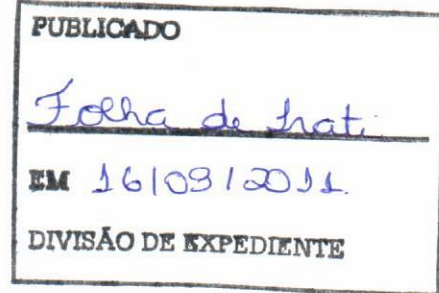 PUBLICADO
Folha de Irati
EM 16/09/2011.
DIVISÃO DE EXPEDIENTE